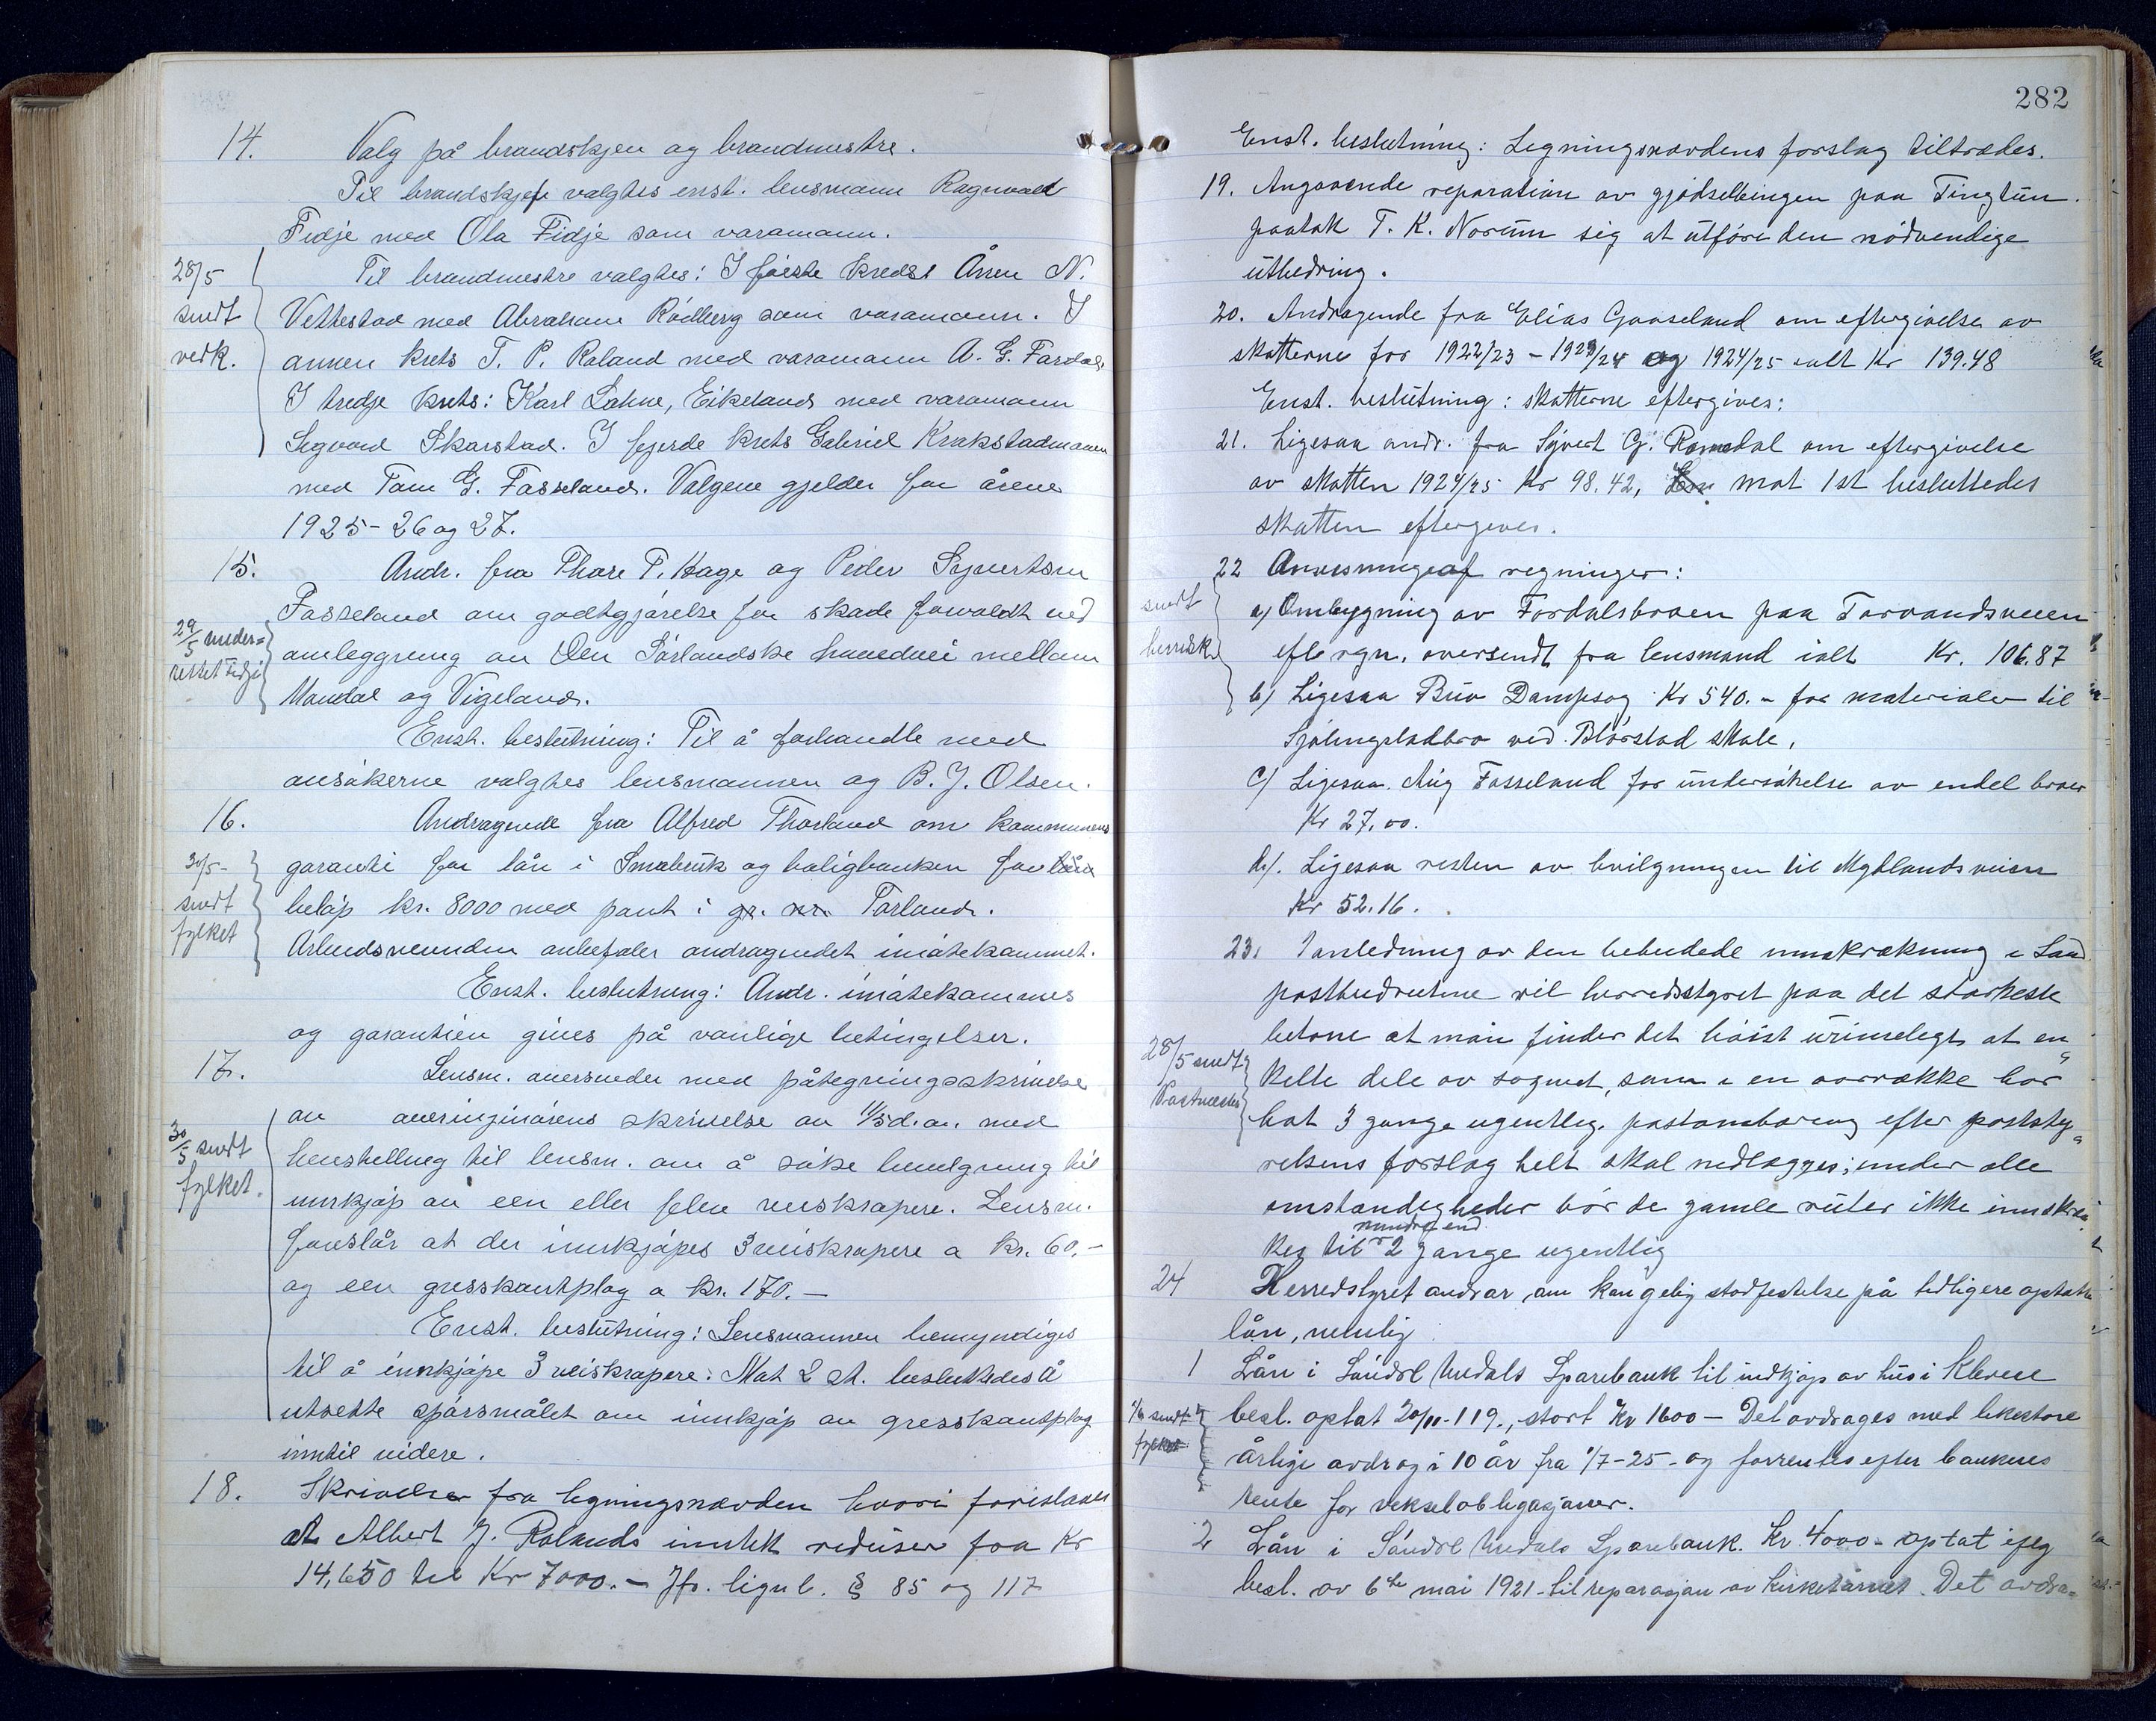 14. Valg på brandskjen og brandmestre.
Til brandskjefe valgtes enst. lensmann Ragnvald
Fidje med Ola Fidje som varamann.
28/5
sendt
vedk.
Til brandmestre valgtes: I første kreds: Ånen N.
Vettestad med Abraham Rödberg som varamann. I
annen krets T. P. Roland med varamann A. G. Fardal.
I tredje krets: Karl Lohne, Eikeland med varamann
Sigvard Skarstad. I fjerde krets Gabriel Krakstadmoen
med Tom G. Fasseland. Valgene gjelder for årene
1925-26 og 27.
15. Andr. fra Thore T. Hage og Peder Syvertsen
Fasseland om godtgjörelse for skade forvoldt ved
29/5 under=
rettet Fidje
omleggning av Den Sörlandske hovedvei mellem
Mandal og Vigeland.
Enst. beslutning: Til å forhandle med
ansökerne valgtes lensmannen og B. J. Olsen.
16. Andragende fra Alfred Thorland om kommunens
30/5-
sendt
fylket
garanti for lån i Småbruk og boligbanken for låne
belöp kr. 8000 med pant i gr. nr. Torland.
Arbeidsnevnden anbefaler andragendet imötekommet.
Enst. beslutning: Andr. imötekommes
og garantien gives på vanlige betingelser.
17. Lensm. oversender med påtegningsskrivelse
30/5 sendt
fylket.
av overingeniörens skrivelse av 11/5 d.a. med
henstilling til lensm. om å söke bevilgning til
innkjöp av een eller flere veiskrapere. Lensm.
foreslår at der innkjöpes 3 veiskrapere a kr. 60.-
og een gresskantplog a kr. 170.-
Enst. beslutning: Lensmannen bemyndiges
til å innkjöpe 3 veiskrapere. Mot 2 st. besluttedes å
utsette spörsmålet om innkjöp av gresskantplog
inntil videre.
18. Skrivelse fra ligningsnævden hvori foreslaaes
at Albert J. Rolands inntekt reduser fra Kr
14,650 til Kr 7000.- Jfr. lignl. § 85 og 117
282
Enst. beslutning: Ligningsnævdens forslag tiltrædes.
19. Angaaende reparation av gjödselbingen paa Tingtun.
paatok T. K. Norum sig at utföre den nödvendige
utbedring.
20. Andragende fra Elias Gaaseland om eftergivelse av
skatterne for 1922/23 - 1923/24 og 1924/25 ialt Kr 139.48
Enst. beslutning: skatterne eftergives:
21. Ligesaa andr. fra Syvert G. Romedal om eftergivelse
av skatten 1924/25 Kr 98.42, mot 1 st besluttedes
skatten eftergives.
22 Anvisning af regninger:
sendt
herredsk.
a) Ombygning av Fordalsbroen paa Torvandsveien
efl regn. oversendt fra lensmand ialt Kr. 106.87
b) Ligesaa Buø Dampsag Kr 540.- for materialer til
Sjölingstadbro ved Blörstad skole,
c) Ligesaa Aug Fasseland for undersökelse av endel broer
Kr 27.00.
d). Ligesaa resten av bevilgningen til Myklandsveien
Kr 52.16.
23. I anledning av den bebudede innskrækning i Land
postbudrutene vil herredsstyret paa det stærkeste
betone at man finder det höist urimelegt at en
28/5 sendt
Postmester
kelte dele av sognet, som i en aarrække har
hat 3 gange ugentlig postombæring efter poststy=
relsens forslag helt skal nedlægges; under alle
omstændigheder bör de gamle ruter ikke innskræn
mindre end
kes til 2 gange ugentlig
24 Herredstyret andrar om kongelig stadfestelse på tidligere optatte
lån, nemlig
1 Lån i Söndre Undals Sparebank til indkjöp av hus i Klevene
1/6 sendt
fylket
besl. optat 20/10-119., stort Kr 1600 - Det avdrages med likestore
årlige avdrag i 10 år fra 1/7-25 - og forrentes efter bankens
rente for vekselobligasjoner.
2 Lån i Söndre Undals Sparebank. Kr. 4000.- optat iflg
besl. av 6te mai 1921 - til reparasjon av kirketårnet. Det avdra=